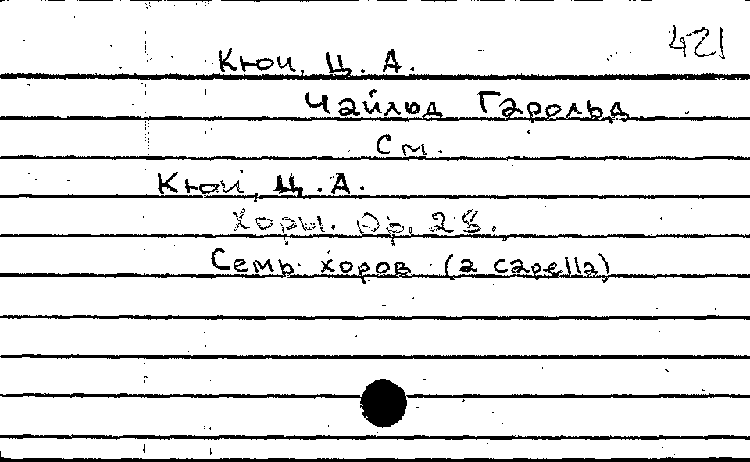 421
Кюи, Ц. А.
Чайльд Гарольд
См.
Кюи, Ц. А.
Хоры. Op. 28.
Семь хоров (a capella)